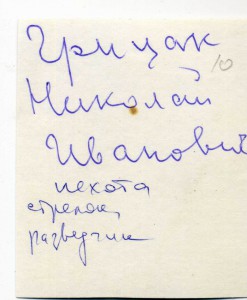 Грицак
10
Николай
Иванович
пехота
стрелок,
разведчик